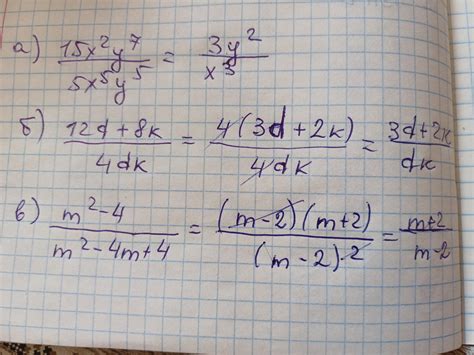 а) 15x²y⁷ / 5x⁵y⁵ = 3y² / x³
б) 12d+8к / 4dк = 4(3d+2к) / 4dк = 3d+2к / dк
в) m²-4 / m²-4m+4 = (m-2)(m+2) / (m-2)² = m+2 / m-2